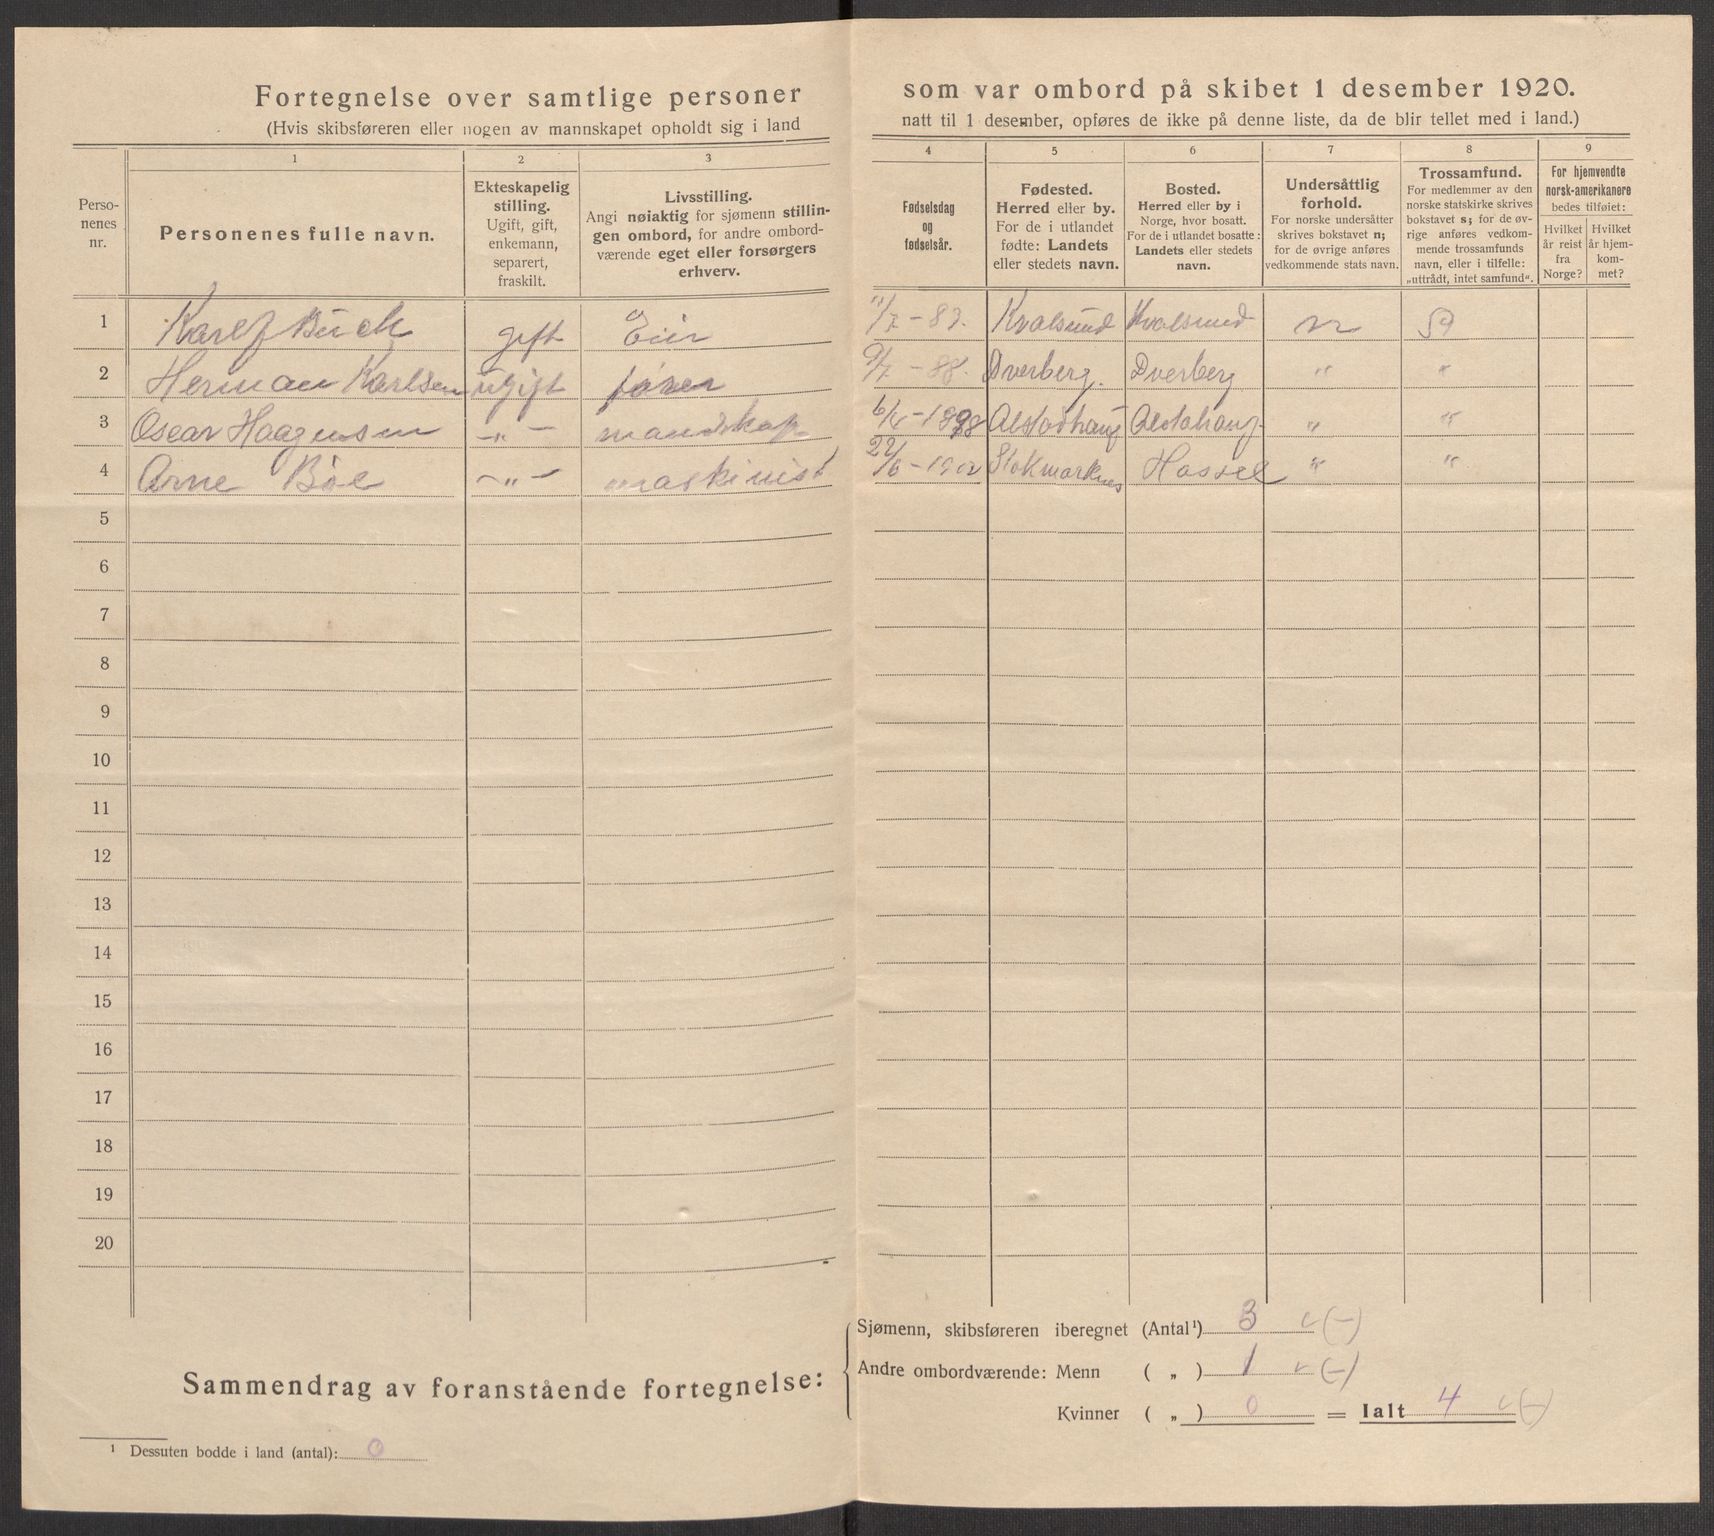 Fortegnelse over samtlige personer som var ombord på skibet 1 desember 1920.
(Hvis skibsføreren eller nogen av mannskapet opholdt sig i land natt til 1 desember, opføres de ikke på denne liste, da de blir tellet med i land.)
Perso-
nenes
nr.
1
Personenes fulle navn.
2
Ekteskapelig
stilling.
Ugift, gift,
enkemann,
separert,
fraskilt.
3
Livsstilling.
Angi nøiaktig for sjømenn stillin-
gen ombord, for andre ombord-
værende eget eller forsørgers
erhverv.
4
Fødselsdag
og
fødselsår.
5
Fødested.
Herred eller by.
For de i utlandet
fødte: Landets
eller stedets navn.
6
Bosted.
Herred eller by i
Norge, hvor bosatt.
For de i utlandet bosatte:
Landets eller stedets
navn.
7
Undersåttlig
forhold.
For norske undersåtter
skrives bokstavet n;
for de øvrige anføres
vedkommende stats navn.
8
Trossamfund.
For medlemmer av den
norske statskirke skrives
bokstavet s; for de øv-
rige anføres vedkom-
mende trossamfunds
navn, eller i tilfelle:
„uttrådt, intet samfund".
9
For hjemvendte
norsk-amerikanere
bedes tilføiet:
Hvilket
år reist
fra
Norge?
Hvilket
år hjem-
kom-
met?
1 Karl J Buck gift Eier 11/7-83. Kvalsund Kvalsund n
2 Herman Karlsen ugift 9/7-88. Dverberg. Dverberg " "
3 Oscar Haagensen -"- mandskap 1898 Alstadhaug Alstahaug " "
4 Arne Böe -"- maskinist 22/6-1902 Stokmarknes Hassel " "
5
6
7
8
9
10
11
12
13
14
15
16
17
18
19
20
Sammendrag av foranstående fortegnelse:
Sjømenn, skibsføreren iberegnet (Antal¹) 3 v (-)
Andre ombordværende: Menn ( „ ) 1 v (-)
Kvinner ( „ ) 0 = Ialt 4 v (-)
¹ Dessuten bodde i land (antal): 0